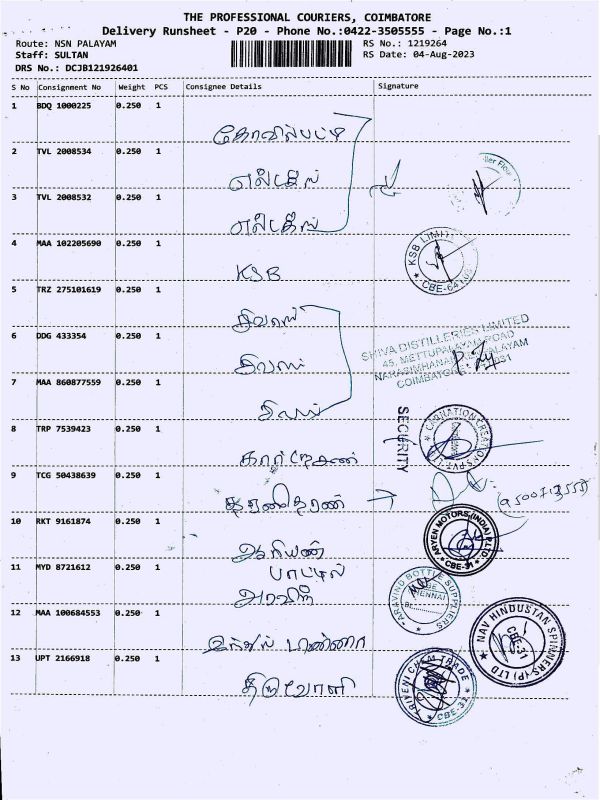 THE PROFESSIONAL COURIERS, COIMBATORE
Delivery Runsheet - P20 - Phone No.:0422-3505555 - Page No.:1
Route: NSN PALAYAM
RS No.: 1219264
Staff: SULTAN
RS Date: 04-Aug-2023
DRS No.: DCJB121926401
S No Consignment No Weight PCS Consignee Details Signature
1 BDQ 1000225 0.250 1
கோவில்பட்டி
2 TVL 2008534 0.250 1
எல்கேல்
ller Flour
3 TVL 2008532 0.250 1
எல்கேல்
4 MAA 102205690 0.250 1
KSB
KSB LIMIT
CBE-641
5 TRZ 275101619 0.250 1
சிவாஸ்
6 DDG 433354 0.250 1
சிவாஸ்
SHIVA DISTILLERIES LIMITED
45, METTUPALAYAM ROAD
NARASIMHANAICKENPALAYAM
COIMBATORE
7 MAA 860877559 0.250 1
சிவாஸ்
8 TRP 7539423 0.250 1
கார்னேசன்
CARNATION CREATIONS PVT. LTD
SECURITY
9 TCG 50438639 0.250 1
தரணிதரன் →
10 RKT 9161874 0.250 1
ஆரியன்
ARYEN MOTORS (INDIA) (P) LTD.
CBE-31
11 MYD 8721612 0.250 1
பாட்டில்
அரவிந்
ARAVIND BOTTLE SUPPLIERS
12 MAA 100684553 0.250 1
இந்துஸ்
NAV HINDUSTAN SPINNERS (P) LTD
CBE-31
13 UPT 2166918 0.250 1
திருவேணி
TRIVENI CHEM TRADE
CBE-31